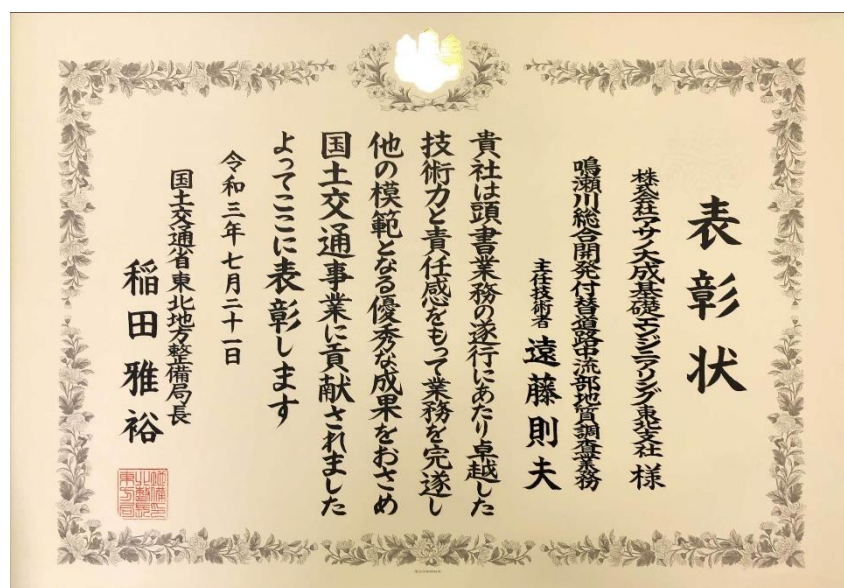 表彰状
株式会社アサノ大成基礎エンジニアリング東北支社 様
鳴瀬川総合開発付替道路中流部地質調査業務
主任技術者 遠藤則夫
貴社は頭書業務の遂行にあたり卓越した
技術力と責任感をもって業務を完遂し
他の模範となる優秀な成果をおさめ
国土交通事業に貢献されました
よってここに表彰します
令和三年七月二十一日
国土交通省東北地方整備局長
稲田雅裕